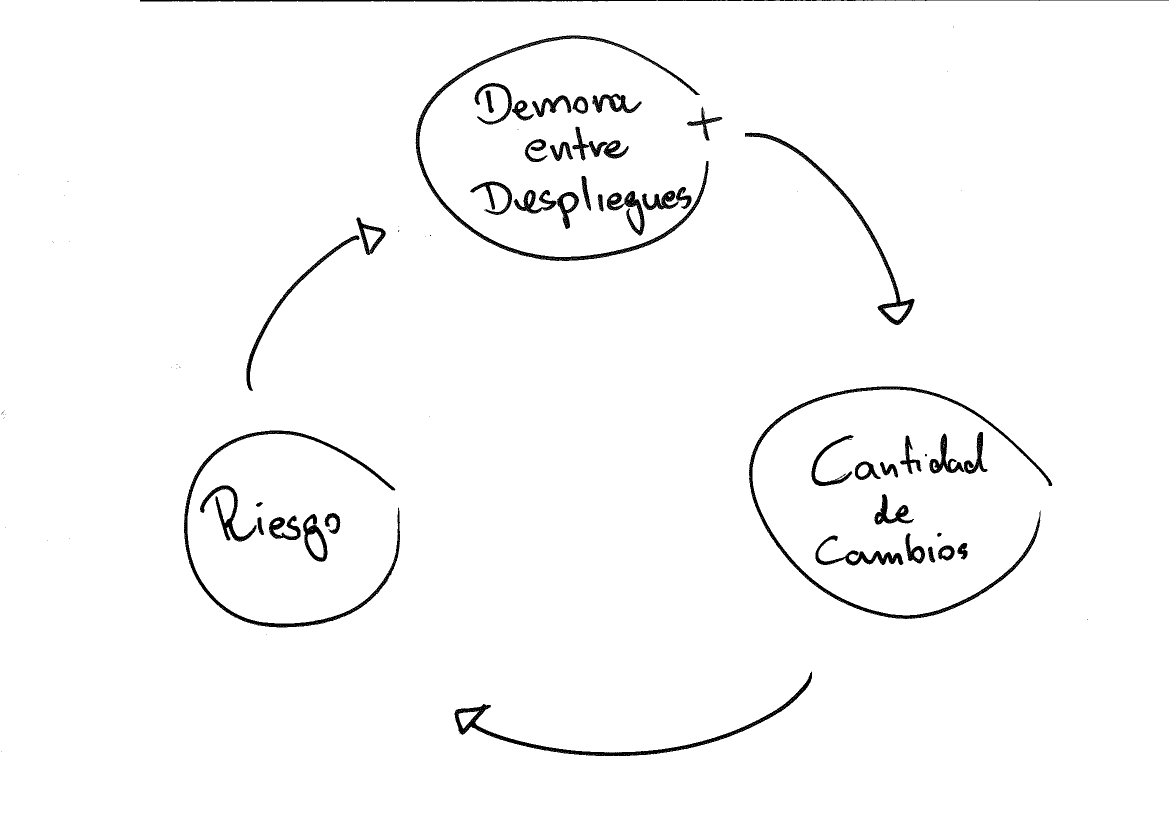 Demora
entre
Despliegues
+
Cantidad
de
Cambios
Riesgo